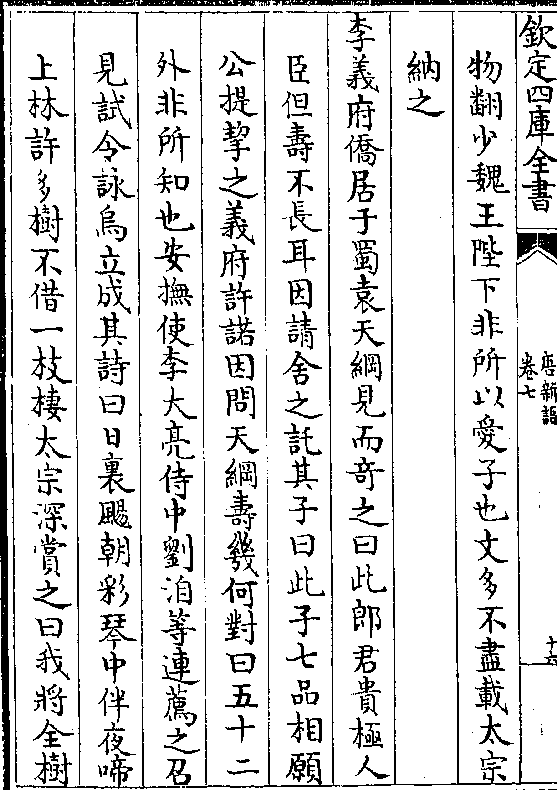 欽定四庫全書
唐新語
卷七
十六
物翻少魏王陛下非所以愛子也文多不盡載太宗
納之
李義府僑居于蜀袁天綱見而奇之曰此郎君貴極人
臣但壽不長耳因請舍之託其子曰此子七品相願
公提挈之義府許諾因問天綱壽幾何對曰五十二
外非所知也安撫使李大亮侍中劉洎等連薦之召
見試令詠烏立成其詩曰日裏颺朝彩琴中伴夜啼
上林許多樹不借一枝棲太宗深賞之曰我將全樹